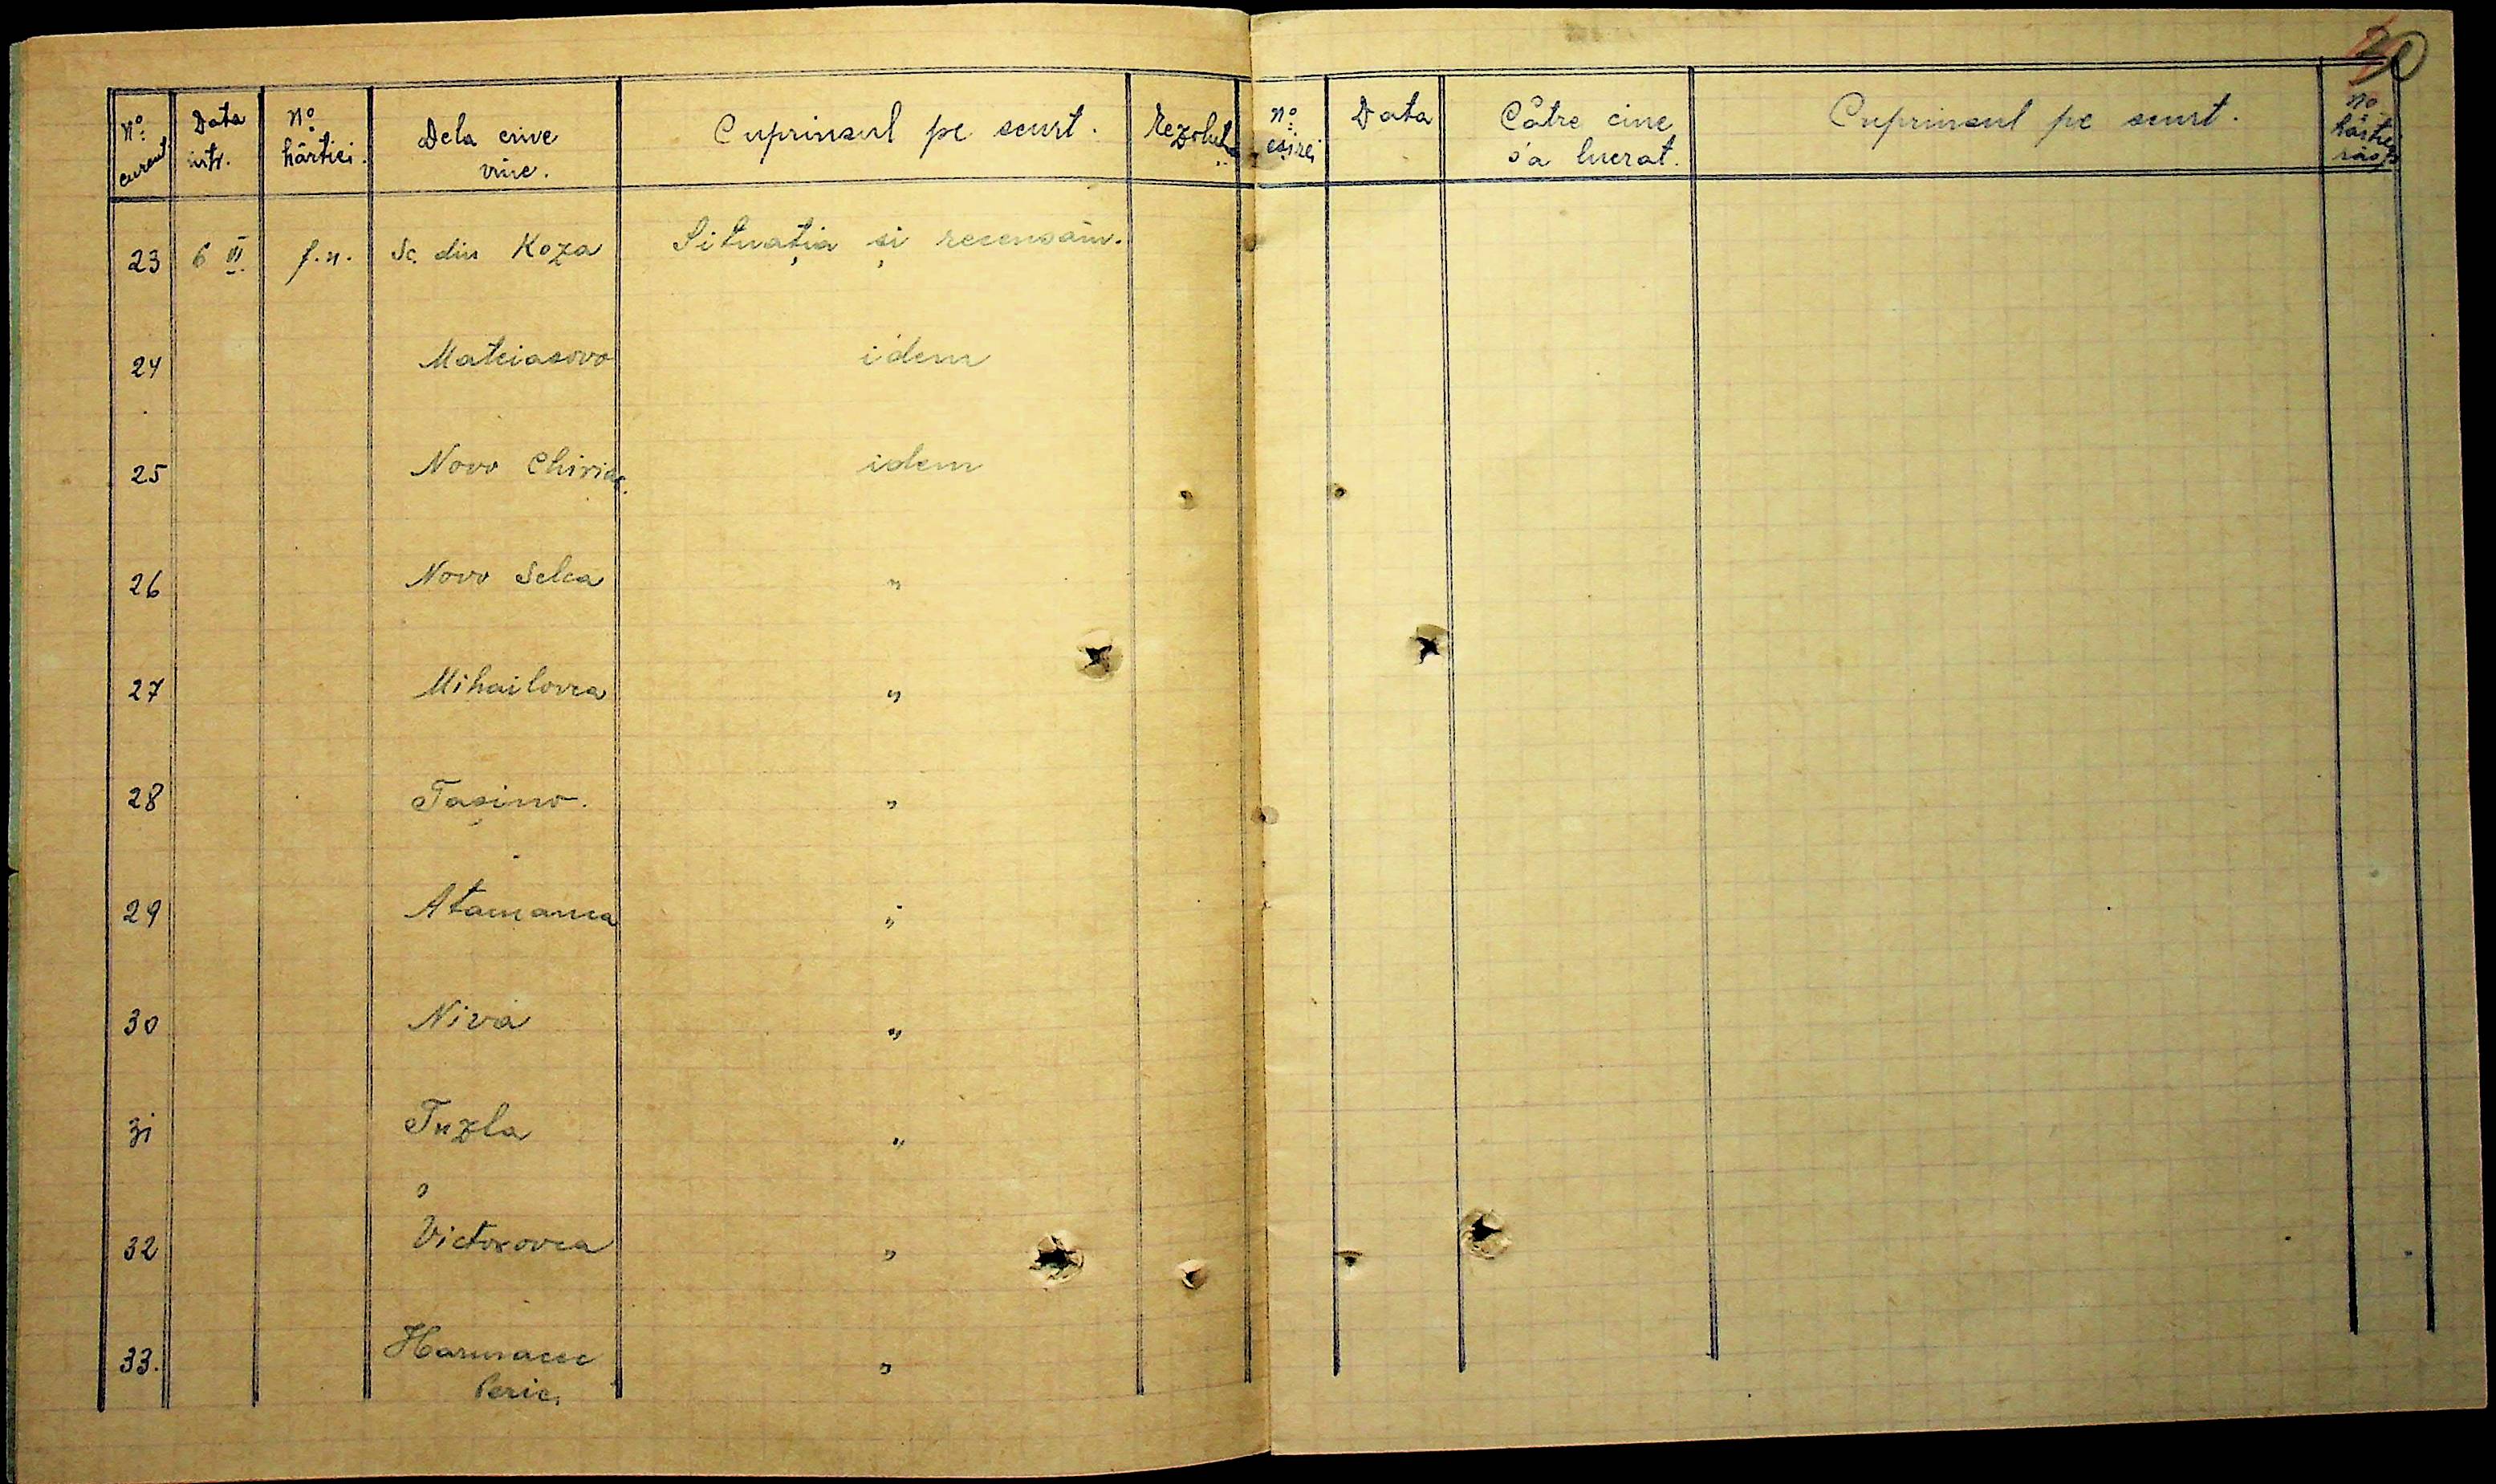 30
Nº curent | Data intr. | Nº hârtiei. | Dela cine vine. | Cuprinsul pe scurt. | Rezoluția | Nº eșirei | Data | Către cine s'a lucrat. | Cuprinsul pe scurt. | Nº hârtiei răsp.
23 | 6 VI. | f.n. | Sc. din Koza | Situația și recensăm.
24 | Mateiasovo | idem
25 | Novo Chiriac. | idem
26 | Novo Selca | "
27 | Mihailovca | "
28 | Tașino. | "
29 | Atamanca | "
30 | Niva | "
31 | Tuzla | "
32 | Victorovca | "
33. | Harmacec Peric. | "